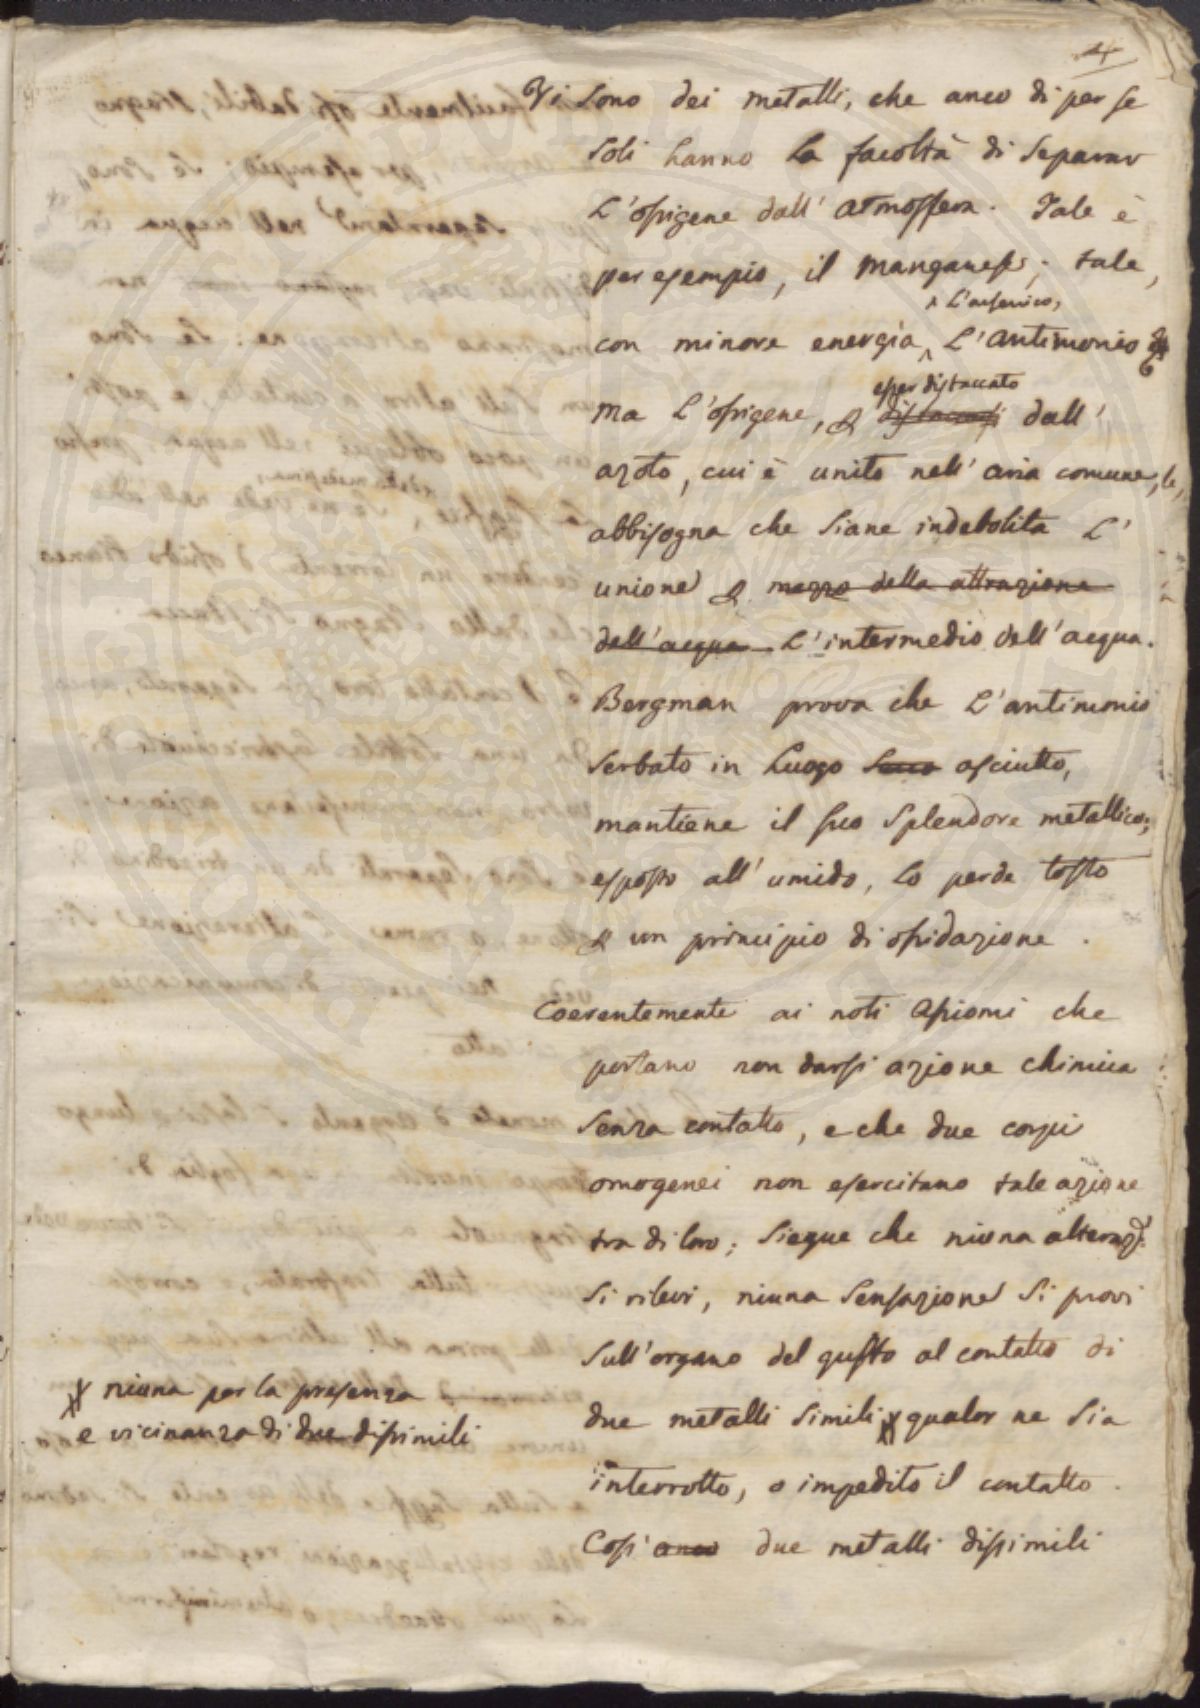 4
Vi sono dei metalli, che anco di per se
soli hanno la facoltà di separar
L'ossigene dall'atmosfera. Tale è
per esempio, il manganese; tale,
^ L'arsenico,
con minore energia, L'antimonio
esser distaccato
ma L'ossigene, distaccarsi dall'
azoto, cui è unito nell'aria comune,
abbisogna che siane indebolita L'
unione mezzo della attrazione
dell'acqua L'intermedio dell'acqua.
Bergman prova che L'antimonio
serbato in Luogo secco asciutto,
mantiene il suo splendore metallico;
esposto all'umido, lo perde tosto
un principio di ossidazione.
Coerentemente ai noti assiomi che
portano non darsi azione chimica
senza contatto, e che due corpi
omogenei non esercitano tale azione
tra di loro; siegue che niuna alteraz.
si rilevi, niuna sensazione si provi
sull'organo del gusto al contatto di
due metalli simili qualor ne sia
interrotto, o impedito il contatto.
Così anco due metalli dissimili
niuna per la presenza
e vicinanza di due dissimili